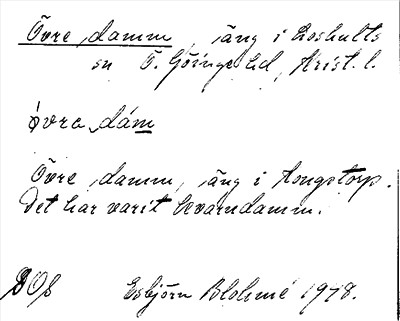 Övre damm, äng i Loshults
sn Ö. Göinge hd, Krist. l.
òvra dám
Övre damm, äng i Kongstorp.
Det har varit kvarndamm.
DOS Esbjörn Blohmé 1978.